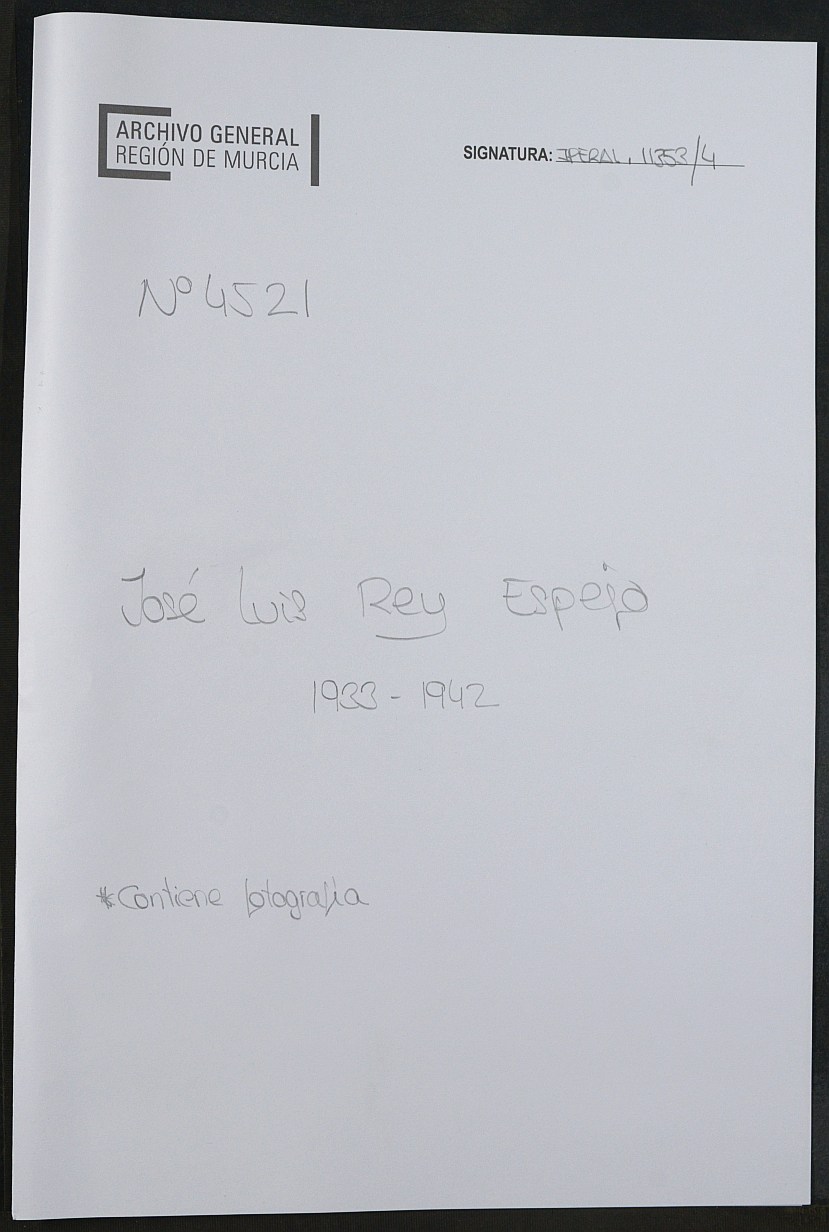 ARCHIVO GENERAL
REGIÓN DE MURCIA
SIGNATURA: IPERAL, 11353/4
Nº 4521
José Luis Rey Espejo
1933 - 1942
*Contiene fotografía